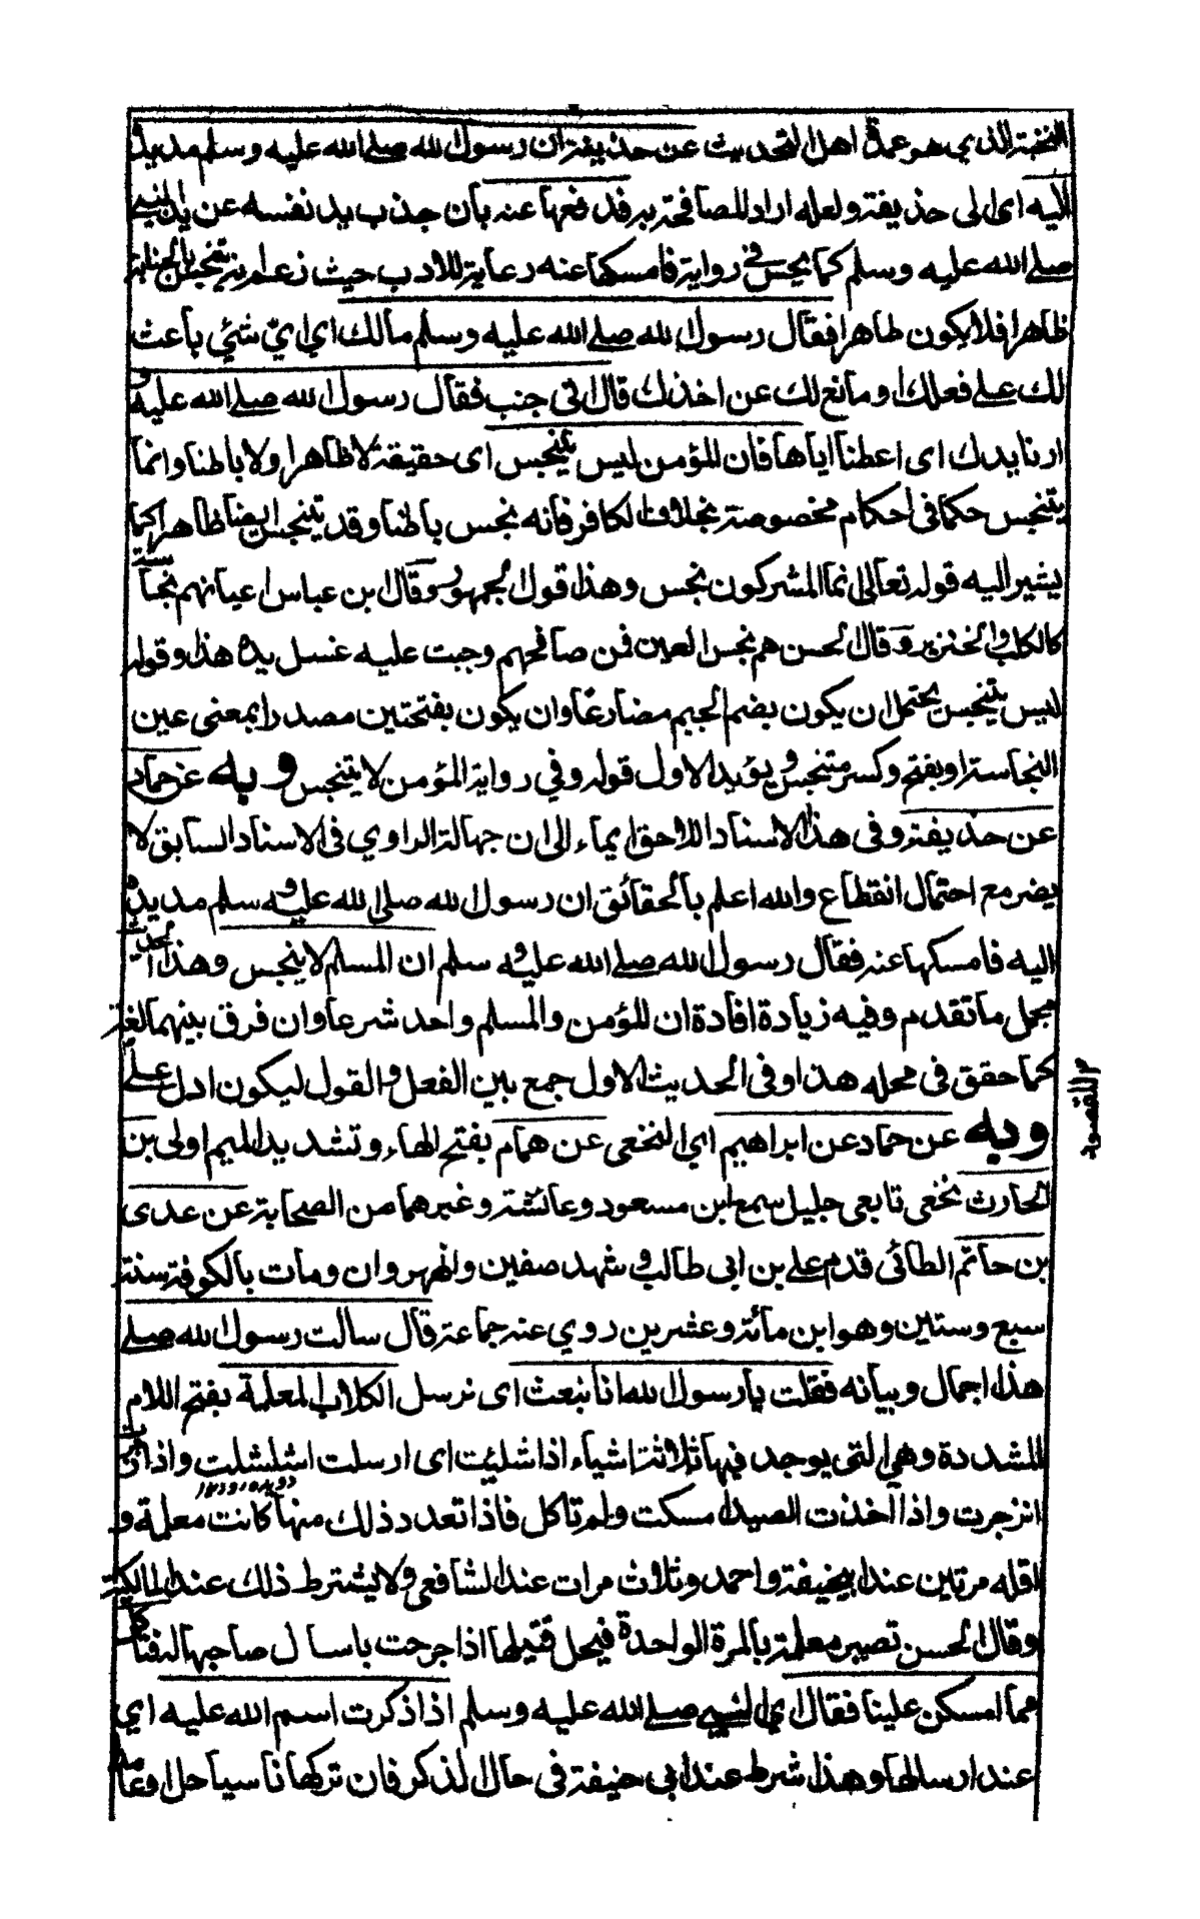 النخبة الذي هو عمدة اهل التحديث عن حذيفة ان رسول الله صلى الله عليه وسلم مد يده
اليه اى الى حذيفة ولعله اراد المصافحة به فدفعها عنه بان جذب يد نفسه عن يد النبي
صلى الله عليه وسلم كما يحسن فى رواية فامسكها عنه رعاية للادب حيث زعم انه يتنجس بالجنابة
ظاهرا فلا يكون طاهرا فقال رسول الله صلى الله عليه وسلم مالك اي ايّ شئي باعث
لك على فعلك او مانع لك عن اخذك قال انى جنب فقال رسول الله صلى الله عليه و
ارنا يدك اى اعطنا اياها فان المؤمن ليس يتنجس اى حقيقة لا ظاهرا ولا باطنا وانما
يتنجس حكما فى احكام مخصوصة بخلاف الكافر فانه نجس باطنا وقد يتنجس ايضا ظاهرا كما
يشير اليه قوله تعالى انما المشركون نجس وهذا قول الجمهور وقال ابن عباس اعيانهم نجاسة
كالكلب والخنزير وقال الحسن هم نجس العين فمن صافحهم وجبت عليه غسل يده هذا وقوله
ليس يتنجس يحتمل ان يكون بضم الجيم مضارعا وان يكون بفتحتين مصدرا بمعنى عين
النجاسة او بفتح وكسر متنجس ويؤيد الاول قوله وفي رواية المؤمن لا يتنجس وبه عن حماد
عن حذيفة وفى هذا الاسناد اللاحق ايماء الى ان جهالة الراوي فى الاسناد السابق لا
يضر مع احتمال انقطاع والله اعلم بالحقائق ان رسول الله صلى الله عليه وسلم مد يده
اليه فامسكها عنه فقال رسول الله صلى الله عليه وسلم ان المسلم لا ينجس وهذا الحديث
مجمل ما تقدم وفيه زيادة افادة ان المؤمن والمسلم واحد شرعا وان فرق بينهما لغة
كما حقق فى محله هذا وفى الحديث الاول جمع بين الفعل والقول ليكون ادل على
المقصود
وبه عن حماد عن ابراهيم اي النخعى عن همام بفتح الهاء وتشديد الميم اولى بن
الحارث نخعى تابعى جليل سمع ابن مسعود وعائشة وغيرهما من الصحابة عن عدى
بن حاتم الطائى قدم على بن ابى طالب و شهد صفين والنهروان ومات بالكوفة سنة
سبع وستين وهو ابن مائة وعشرين روي عنه جماعة قال سالت رسول الله صلى
هذا اجمال وبيانه فقلت يا رسول الله انا نبعث اى نرسل الكلاب المعلمة بفتح اللام
المشددة وهي التى يوجد فيها ثلاثة اشياء اذا شليت اى ارسلت استشلت واذا زجرت
انزجرت واذا اخذت الصيد امسكت ولم تاكل فاذا تعدد ذلك منها كانت معلمة و
اقله مرتين عند ابيحنيفة واحمد وثلاث مرات عند الشافعى ولا يشترط ذلك عند المالكية
وقال الحسن تصير معلمة بالمرة الواحدة فيحل قتيلها اذا جرحت بارسال صاحبها افناكل
مما امسكن علينا فقال اي النبي صلى الله عليه وسلم اذا ذكرت اسم الله عليه اي
عند ارسالها وهذا شرط عند ابى حنيفة فى حال الذكر فان تركها ناسيا حل او عامدا